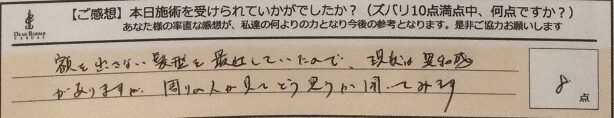 【ご感想】本日施術を受けられていかがでしたか？（ズバリ10点満点中、何点ですか？）
DEAR BARBER
あなた様の率直な感想が、私達の何よりの力となり今後の参考となります。是非ご協力お願いします
額を出さない髪型を最近していたので、現状は異和感
がありますが、周りの人が見てどう思うか聞いてみます
8
点